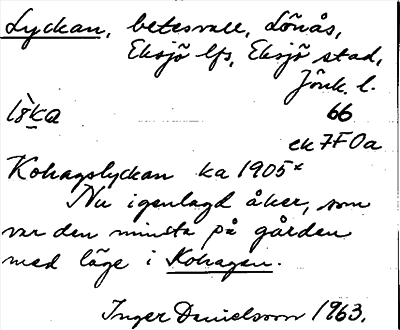 Lyckan, betesvall, Lönås,
Eksjö lfs, Eksjö stad,
Jönk. l.
66
ek 7F0a
Kohagslyckan ka 1905*
Nu igenlagd åker, som
var den minsta på gården
med läge i Kohagen.
Inger Danielsson 1963.